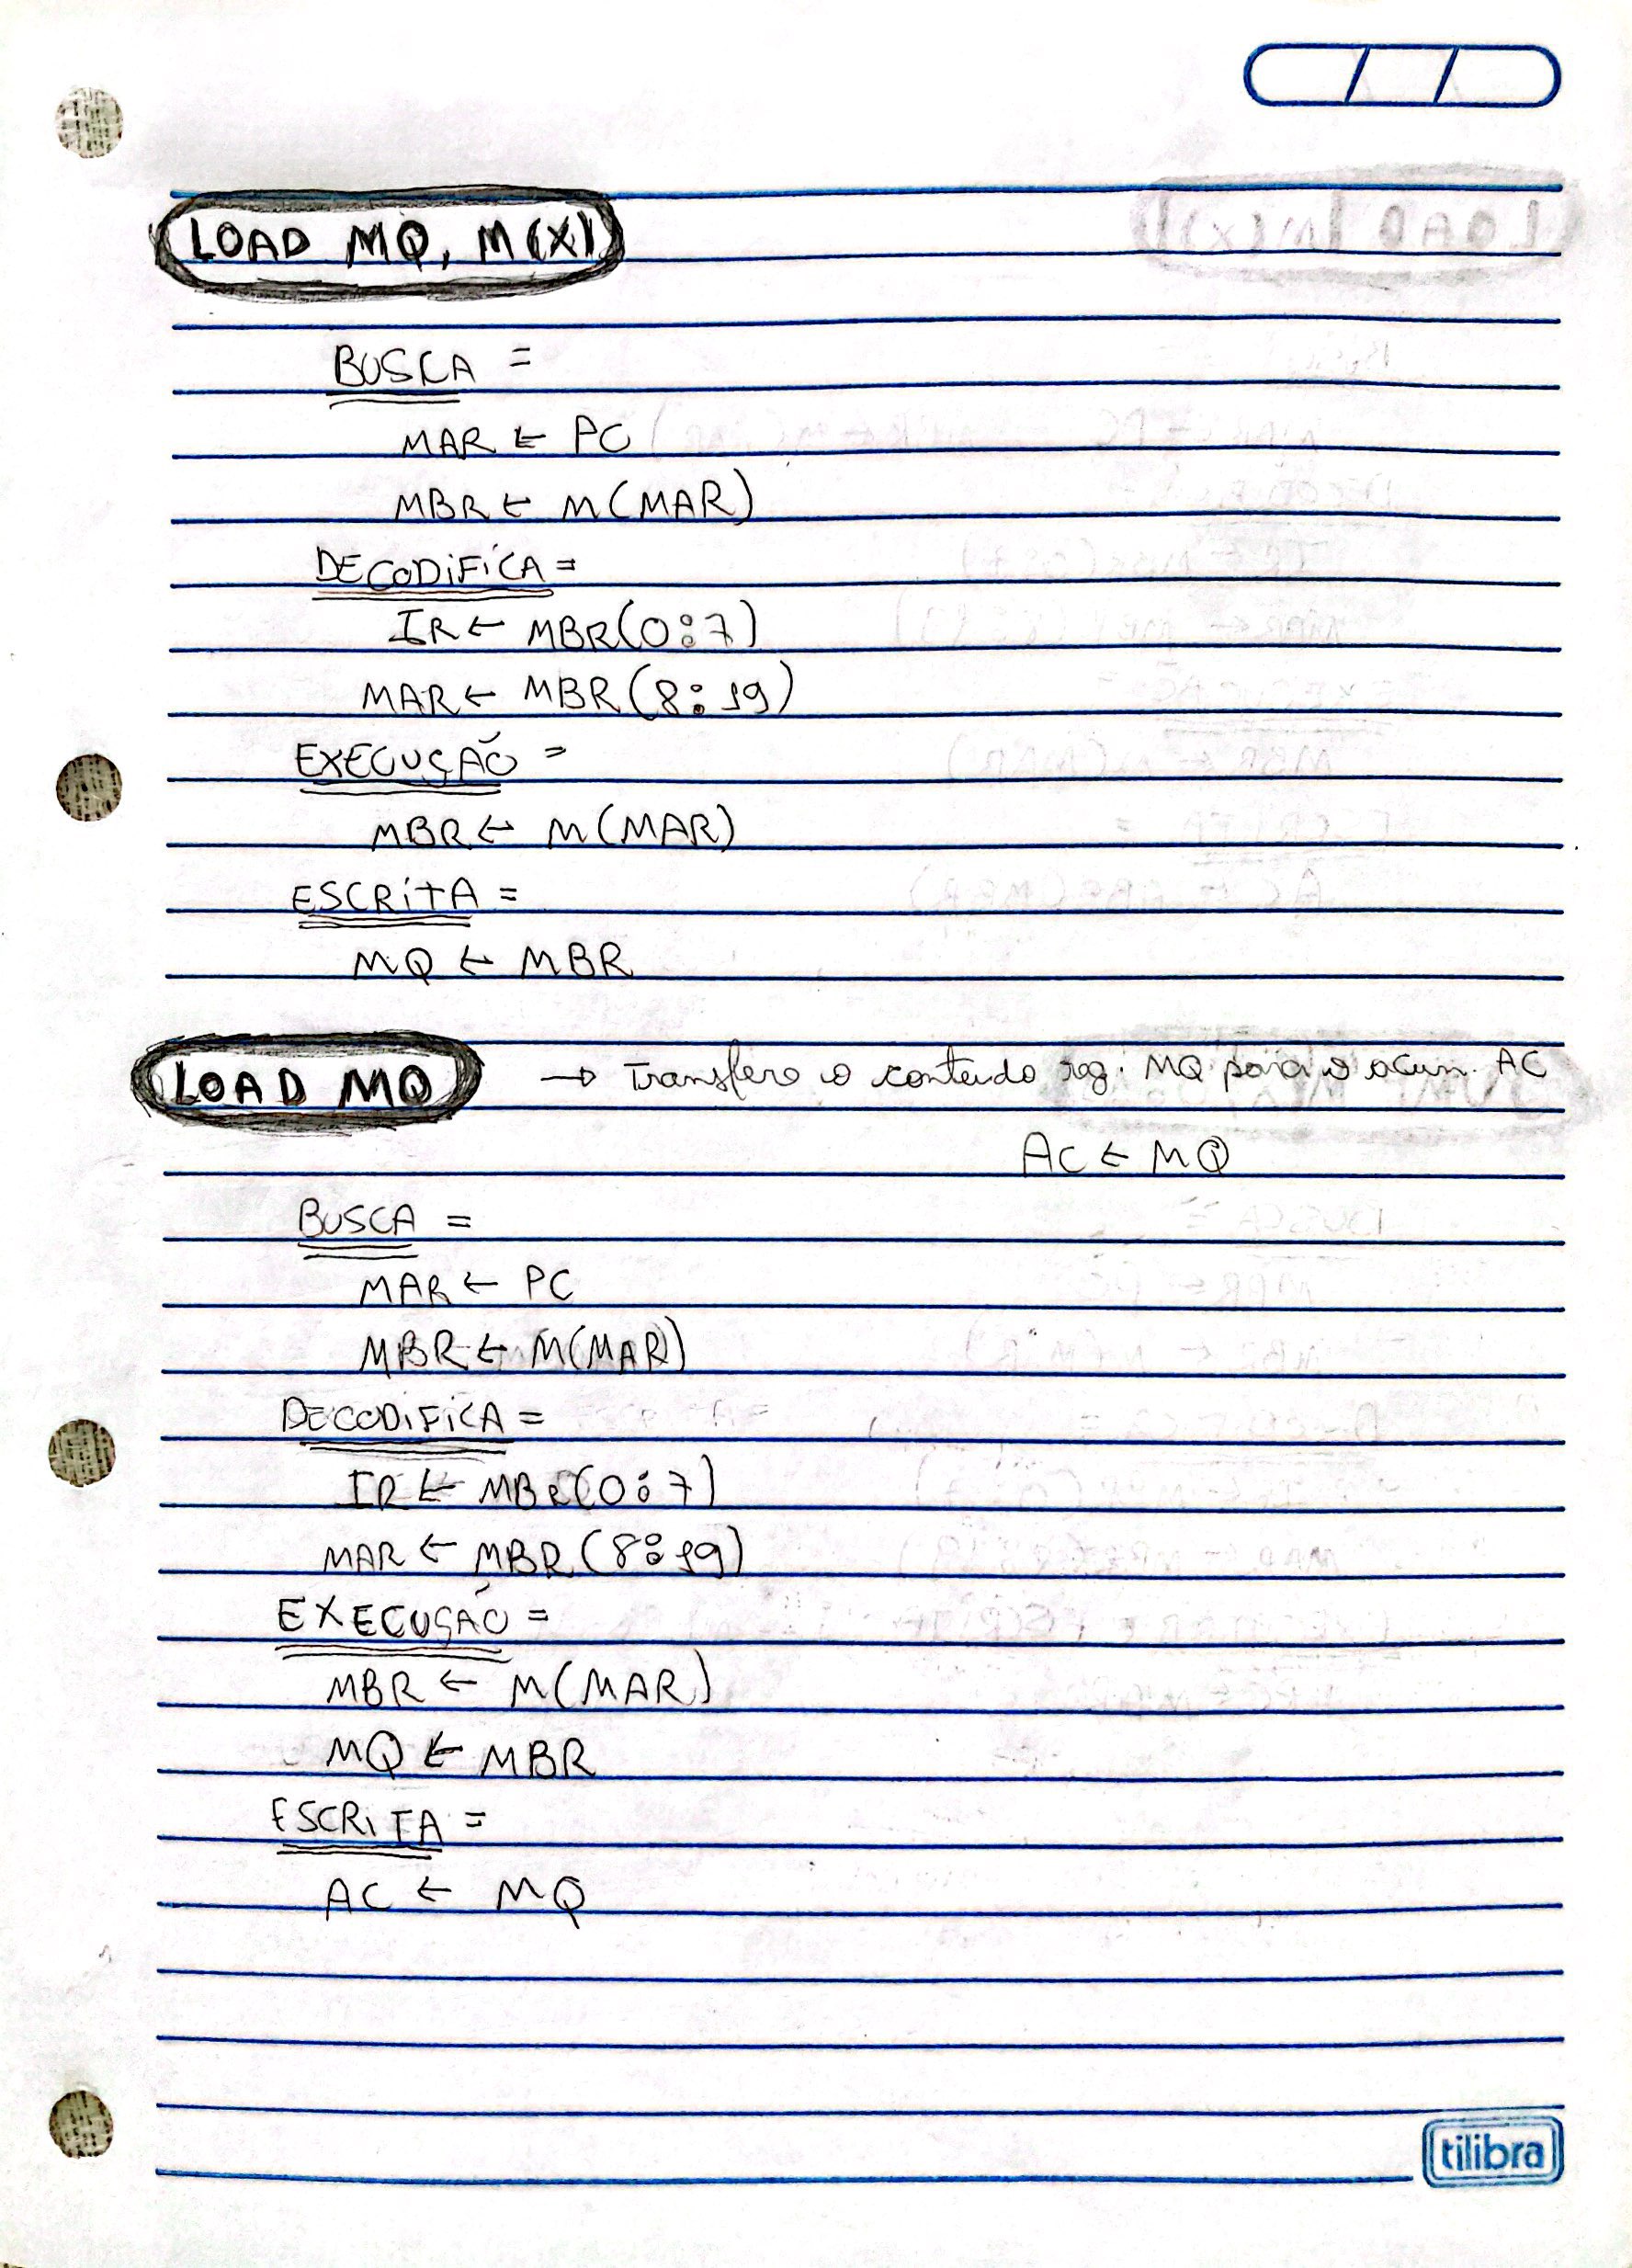 LOAD MQ, M(X)
BUSCA =
MAR ← PC
MBR ← M(MAR)
DECODIFICA =
IR ← MBR(0:7)
MAR ← MBR(8:19)
EXECUÇÃO =
MBR ← M(MAR)
ESCRITA =
MQ ← MBR
LOAD MQ → Transfere o conteudo reg. MQ para o acum. AC
AC ← MQ
BUSCA =
MAR ← PC
MBR ← M(MAR)
DECODIFICA =
IR ← MBR(0:7)
MAR ← MBR(8:19)
EXECUÇÃO =
MBR ← M(MAR)
MQ ← MBR
ESCRITA =
AC ← MQ
tilibra